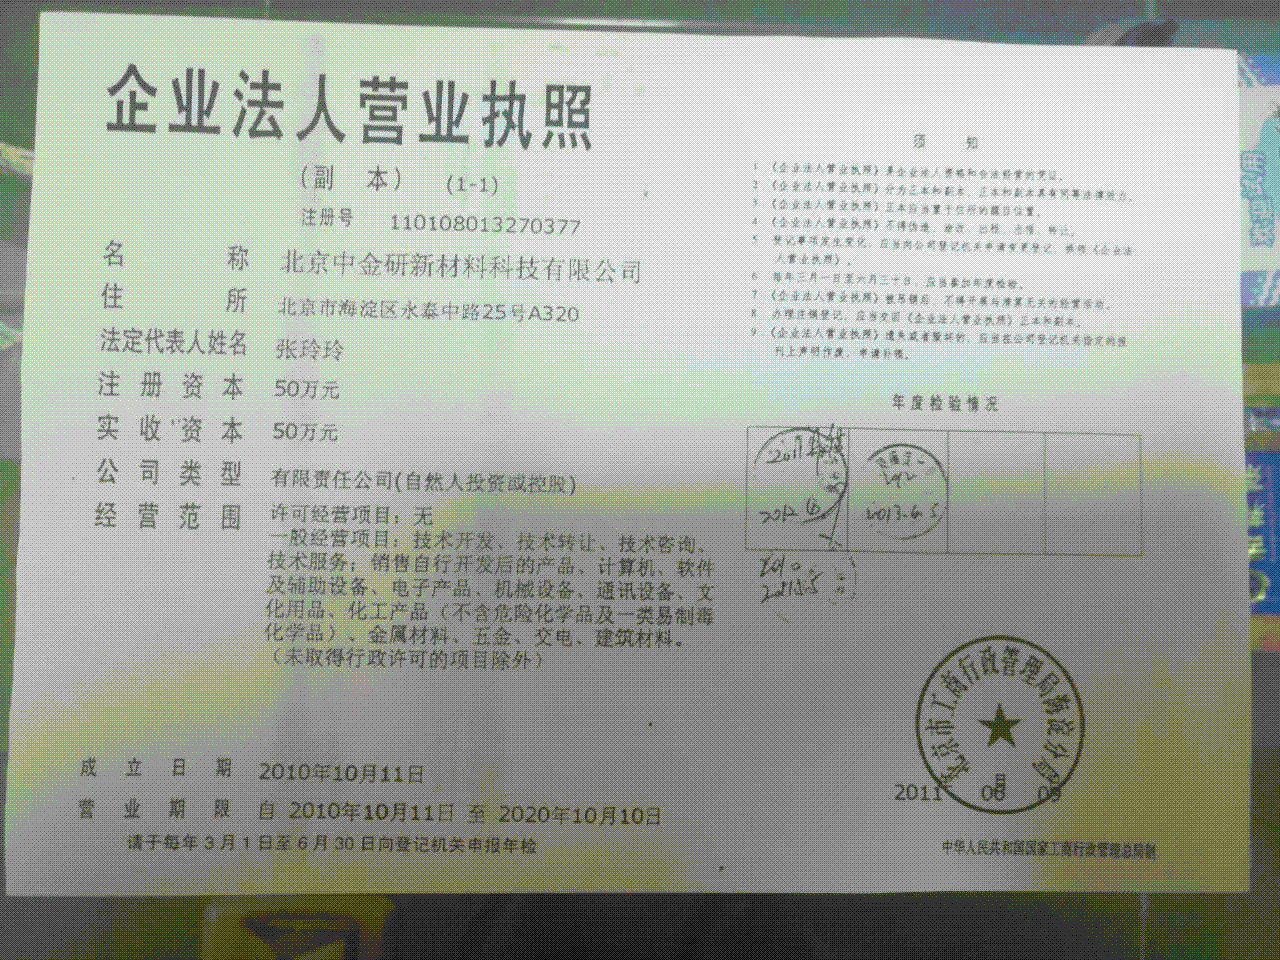 企业法人营业执照
（副 本） (1-1)
注册号 110108013270377
名 称 北京中金研新材料科技有限公司
住 所 北京市海淀区永泰中路25号A320
法定代表人姓名 张玲玲
注册资本 50万元
实收资本 50万元
公司类型 有限责任公司(自然人投资或控股)
经营范围 许可经营项目：无
一般经营项目：技术开发、技术转让、技术咨询、
技术服务；销售自行开发后的产品、计算机、软件
及辅助设备、电子产品、机械设备、通讯设备、文
化用品、化工产品（不含危险化学品及一类易制毒
化学品）、金属材料、五金、交电、建筑材料。
（未取得行政许可的项目除外）
成立日期 2010年10月11日
营业期限 自 2010年10月11日 至 2020年10月10日
请于每年3月1日至6月30日向登记机关申报年检
须 知
1 《企业法人营业执照》是企业法人资格和合法经营的凭证。
2 《企业法人营业执照》分为正本和副本，正本和副本具有同等法律效力。
3 《企业法人营业执照》正本应当置于住所的醒目位置。
4 《企业法人营业执照》不得伪造、涂改、出租、出借、转让。
5 登记事项发生变化，应当向公司登记机关申请变更登记，换领《企业法
人营业执照》。
6 每年三月一日至六月三十日，应当参加年度检验。
7 《企业法人营业执照》被吊销后，不得开展与清算无关的经营活动。
8 办理注销登记，应当交回《企业法人营业执照》正本和副本。
9 《企业法人营业执照》遗失或者毁坏的，应当在公司登记机关指定的报
刊上声明作废，申请补领。
年度检验情况
2011
2012
2012
2013.6.5
2010
北京市工商行政管理局海淀分局
2011 06 09
月
中华人民共和国国家工商行政管理总局制